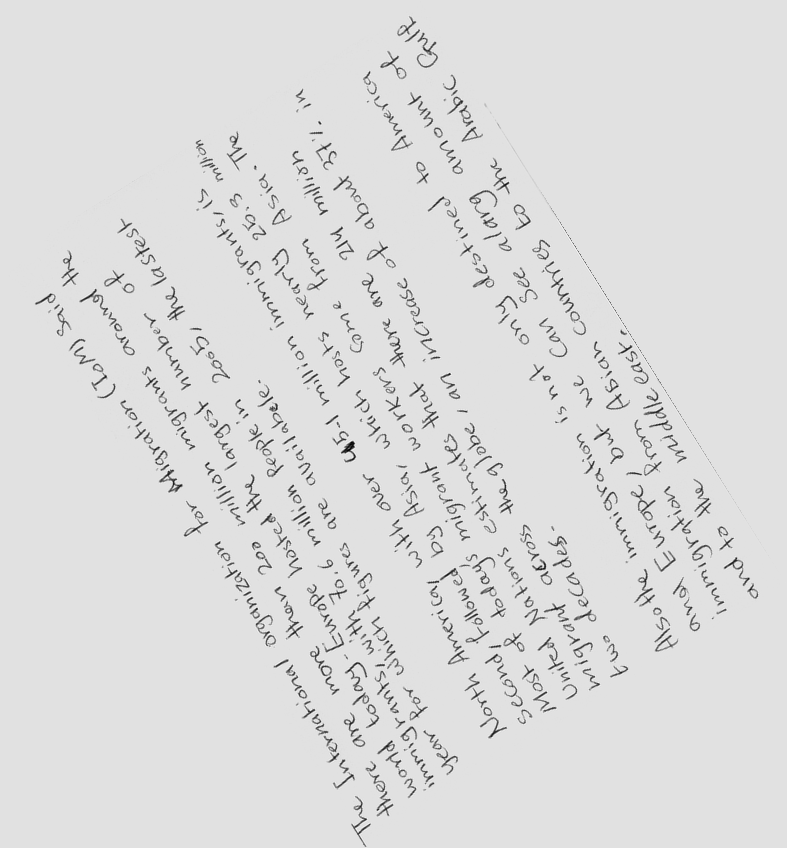 The International organization for Migration (IoM) said the
there are more than 200 million migrants around the
world today. Europe hosted the largest number of
immigrants, with 70.6 million People in 2005, the lastest
year for which figures are availabele.
North America, with over 45.1 million immigrants, is
second, followed by Asia, which hosts nearly 25.3 million
Most of today's migrant workers come from Asia. The
United Nations estimates that there are 214 million
migrant across the globe, an increase of about 37% in
two decades.
Also the immigration is not only destined to America
and Europe, but we can see alarg amount of
immigration from Asian countries to the Arabic Gulf
and to the middle east.